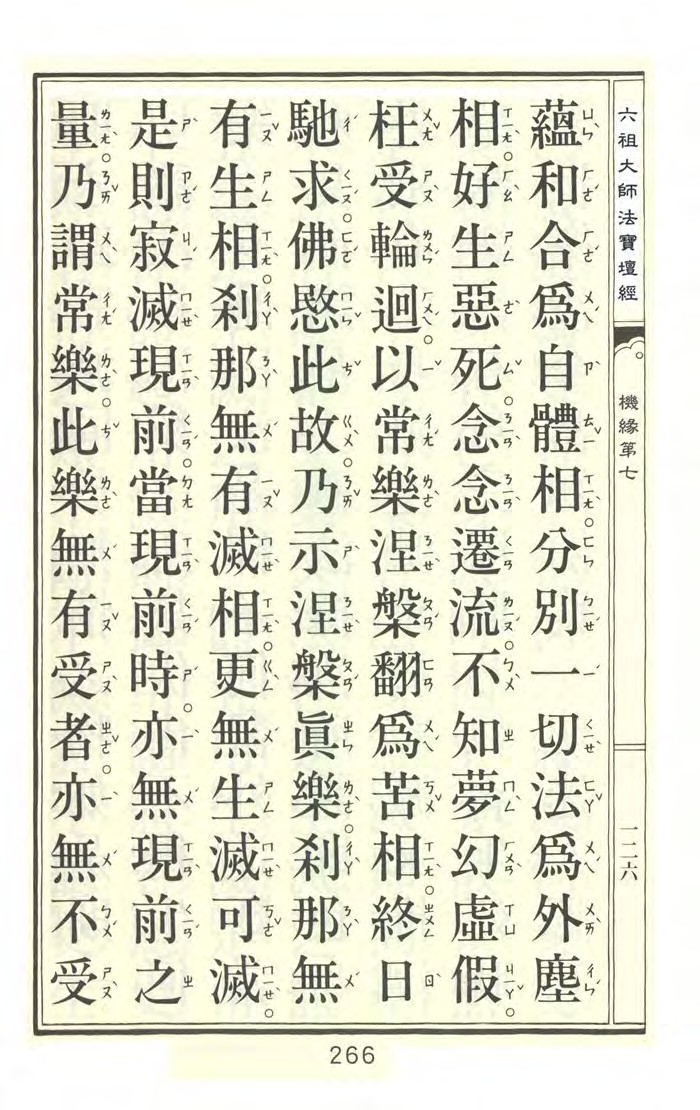 六祖大師法寶壇經 機緣第七 一二六
蘊和合爲自體相。分別一切法爲外塵
相。好生惡死。念念遷流。不知夢幻虛假。
枉受輪迴。以常樂涅槃翻爲苦相。終日
馳求。佛愍此故。乃示涅槃眞樂。剎那無
有生相。剎那無有滅相。更無生滅可滅。
是則寂滅現前。當現前時。亦無現前之
量。乃謂常樂。此樂無有受者。亦無不受
266